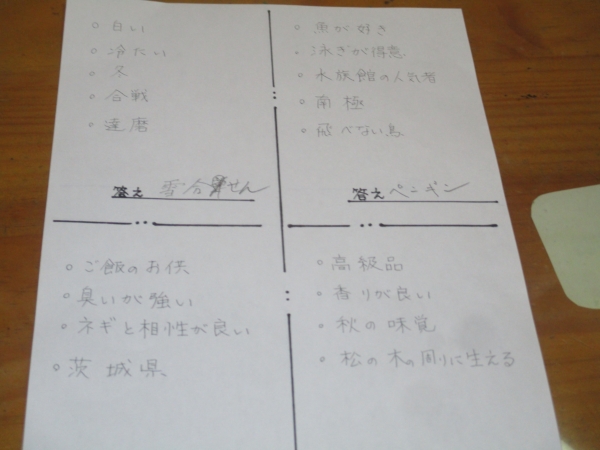 白い
冷たい
冬
合戦
達磨
答え 雪合せん
魚が好き
泳ぎが得意
水族館の人気者
南極
飛べない鳥
答え ペンギン
ご飯のお供
臭いが強い
ネギと相性が良い
茨城県
高級品
香りが良い
秋の味覚
松の木の周りに生える